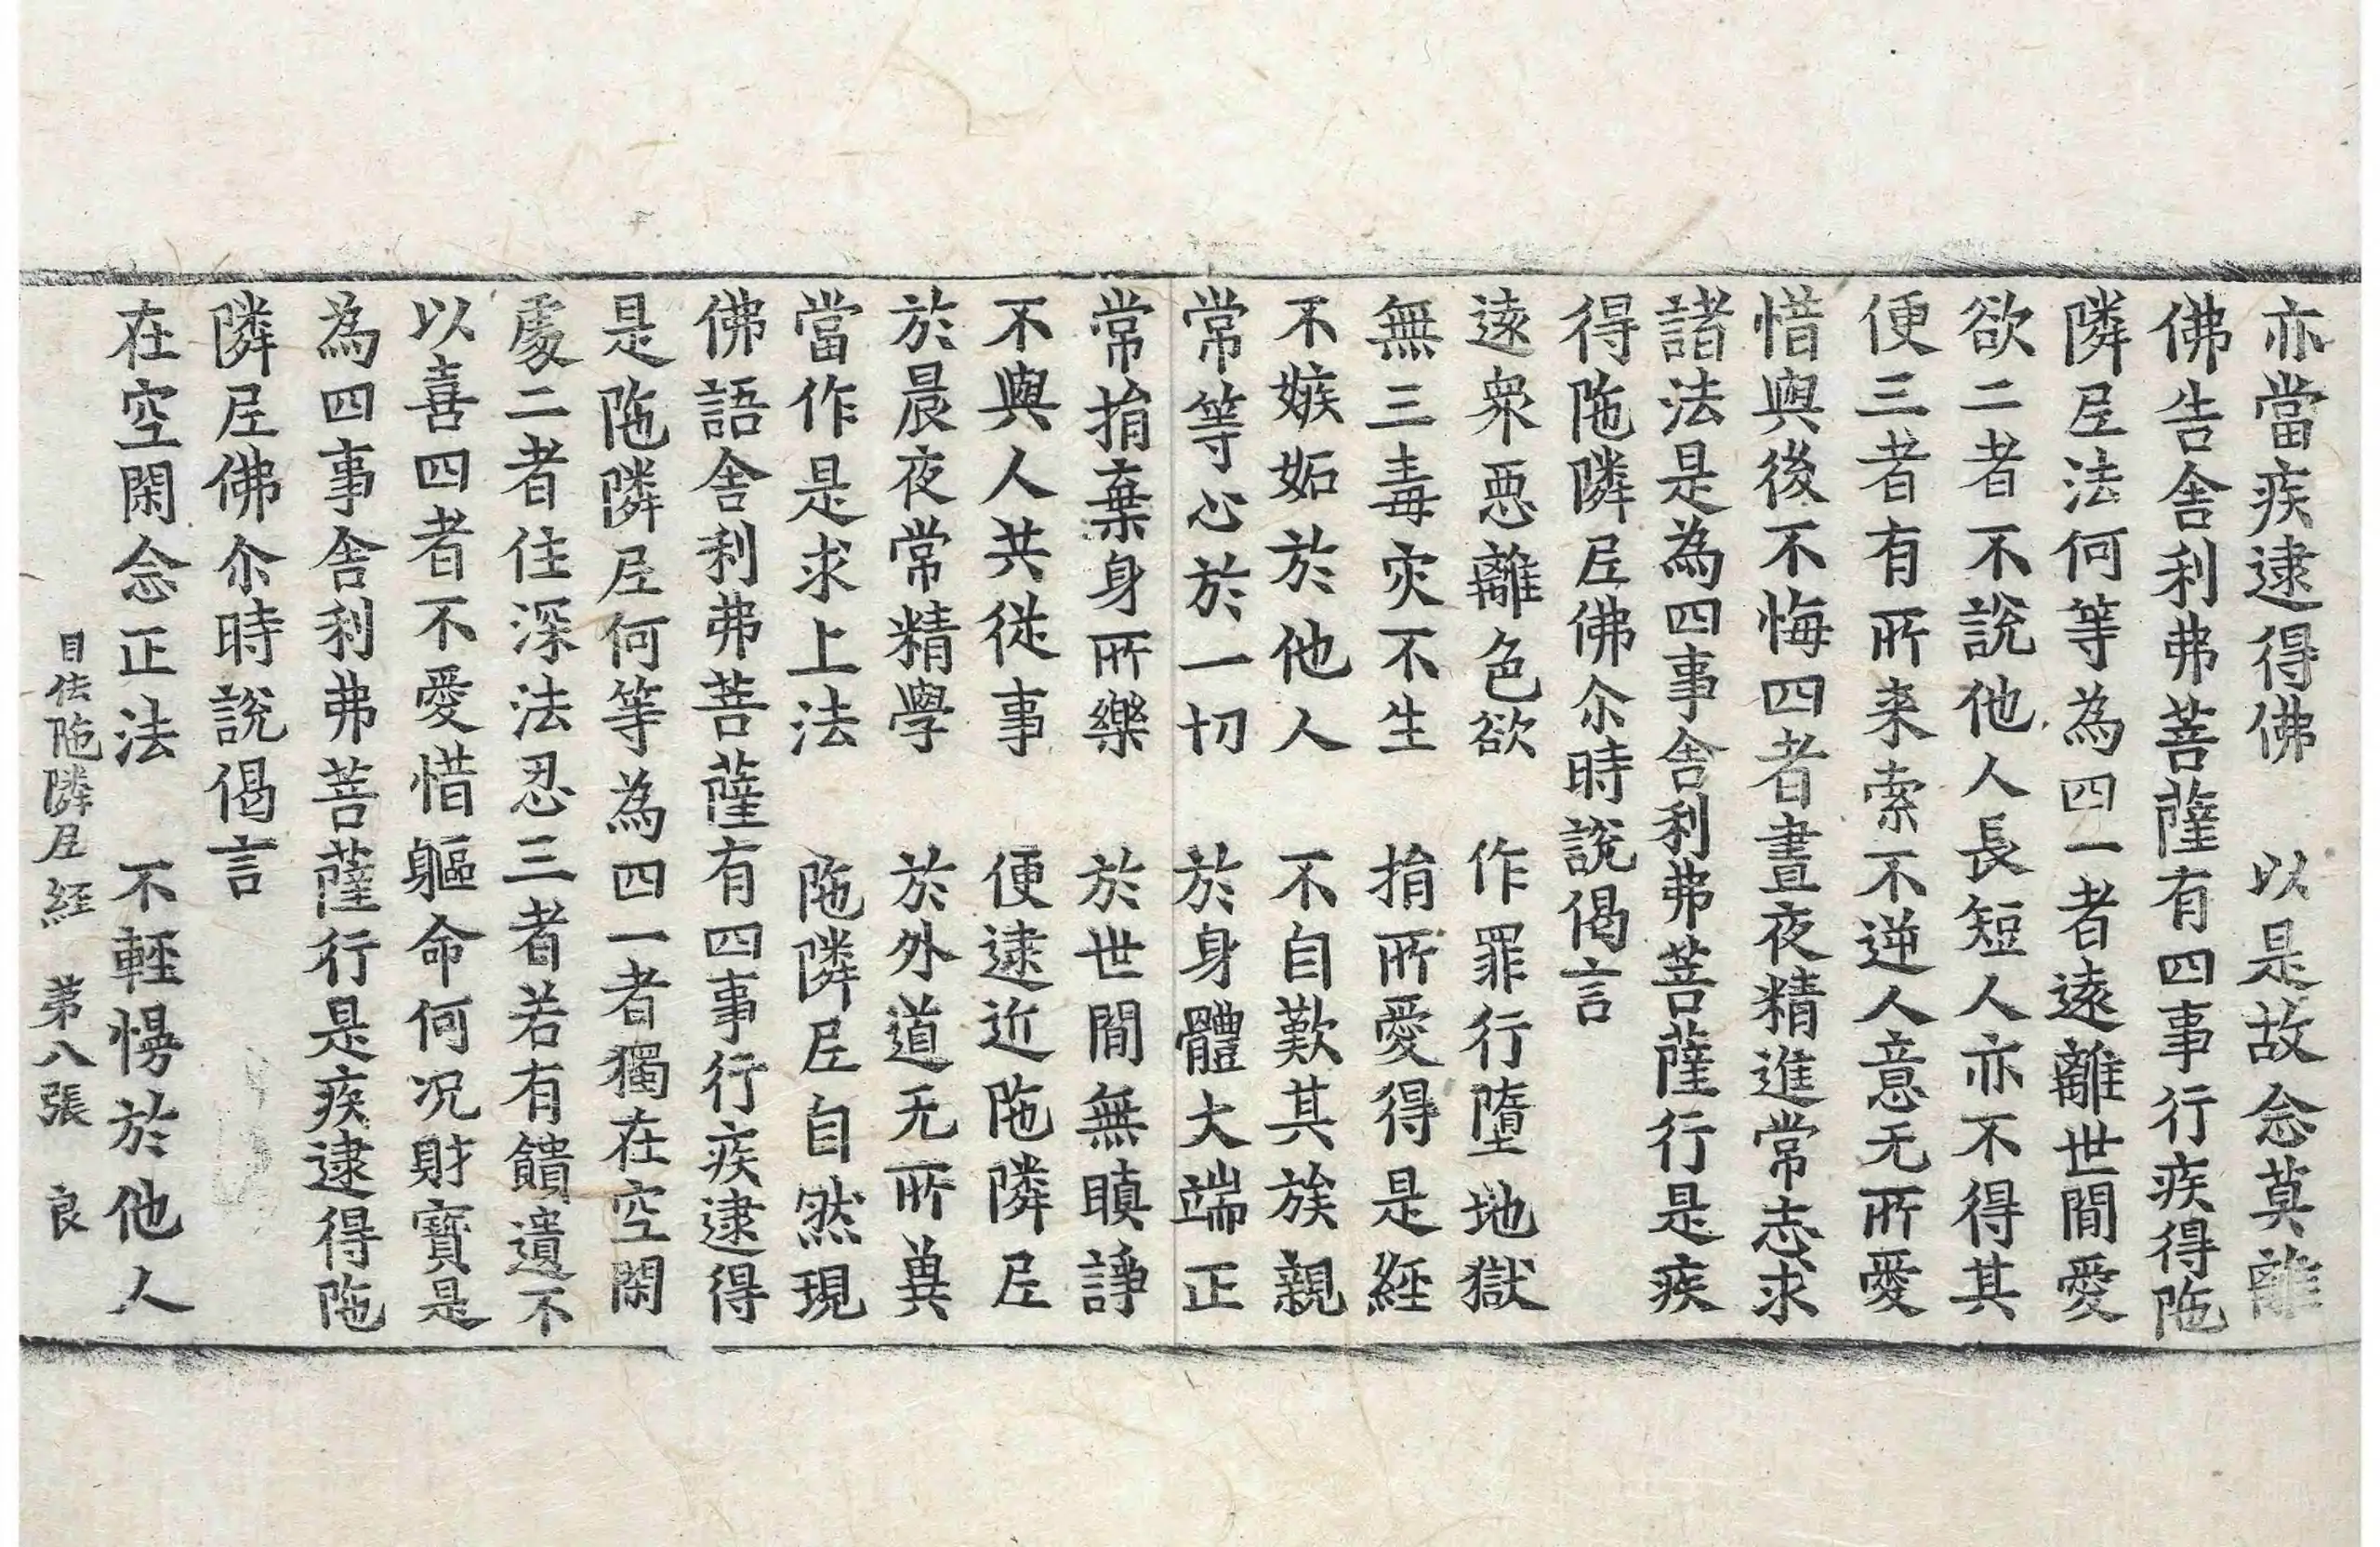 亦當疾逮得佛　以是故念莫離
佛告舍利弗菩薩有四事行疾得陁
隣尼法何等為四一者遠離世間愛
欲二者不說他人長短人亦不得其
便三者有所来索不逆人意无所愛
惜與後不悔四者晝夜精進常志求
諸法是為四事舍利弗菩薩行是疾
得陁隣尼佛尒時說偈言
遠衆惡離色欲　作罪行墮地獄
無三毒灾不生　捐所愛得是經
不嫉妬於他人　不自歎其族親
常等心於一切　於身體大端正
常捐棄身所樂　於世間無瞋諍
不與人共從事　便逮近陁隣尼
於晨夜常精學　於外道无所異
當作是求上法　陁隣尼自然現
佛語舍利弗菩薩有四事行疾逮得
是陁隣尼何等為四一者獨在空閑
處二者住深法忍三者若有饋遺不
以喜四者不愛惜軀命何况財寶是
為四事舍利弗菩薩行是疾逮得陁
隣尼佛尒時說偈言
在空閑念正法　不輕慢於他人
目佉陁隣尼経　第八張　良